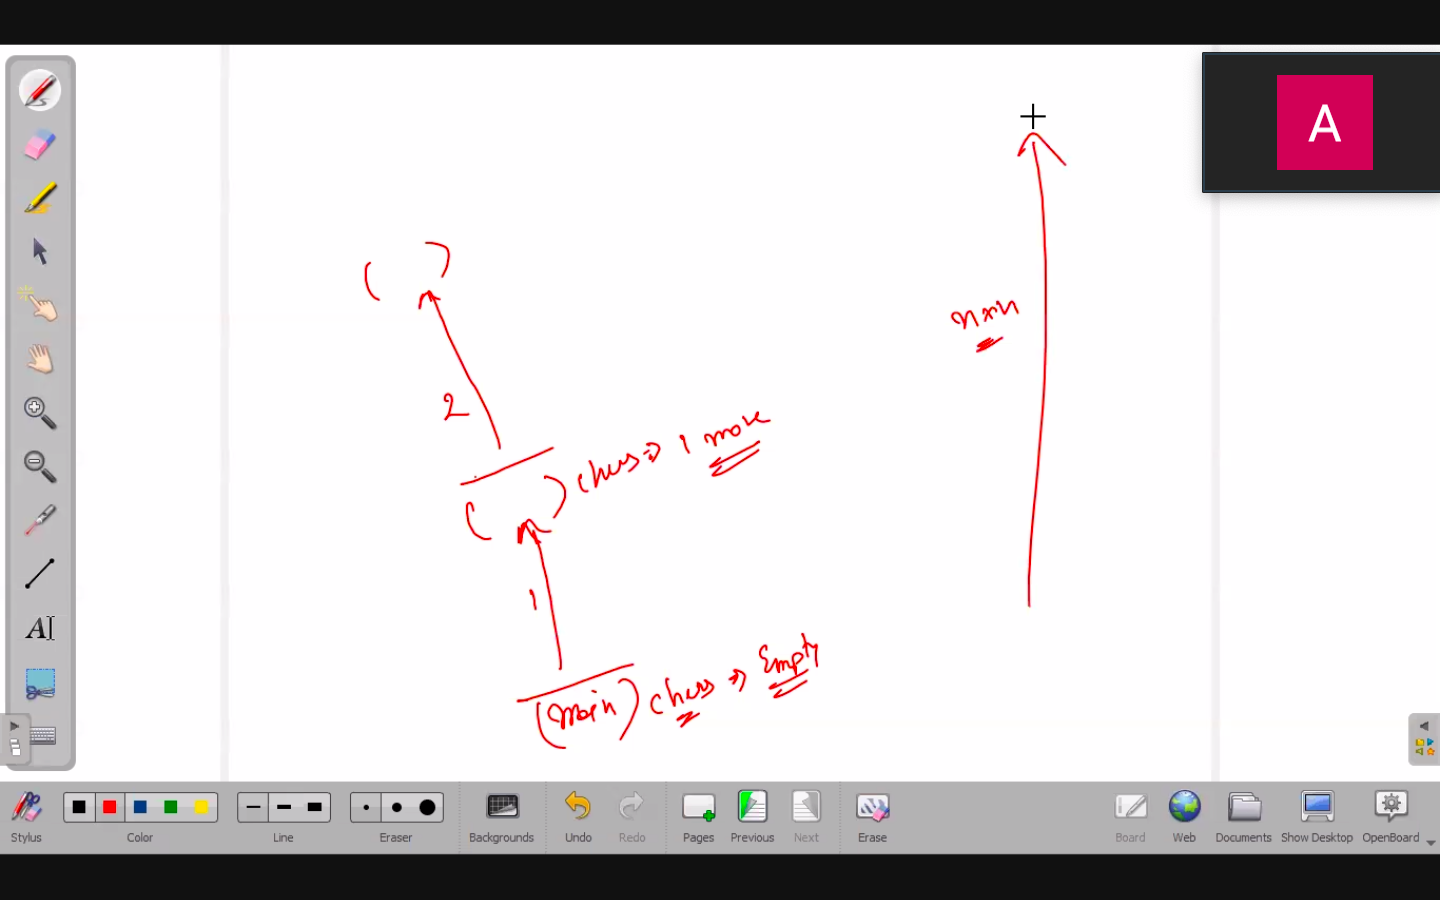 A
n×n
2
( )
( ) chess => 1 move
1
(main) chess => Empty
A
Stylus
Color
Line
Eraser
Backgrounds
Undo
Redo
Pages
Previous
Next
Erase
Board
Web
Documents
Show Desktop
OpenBoard